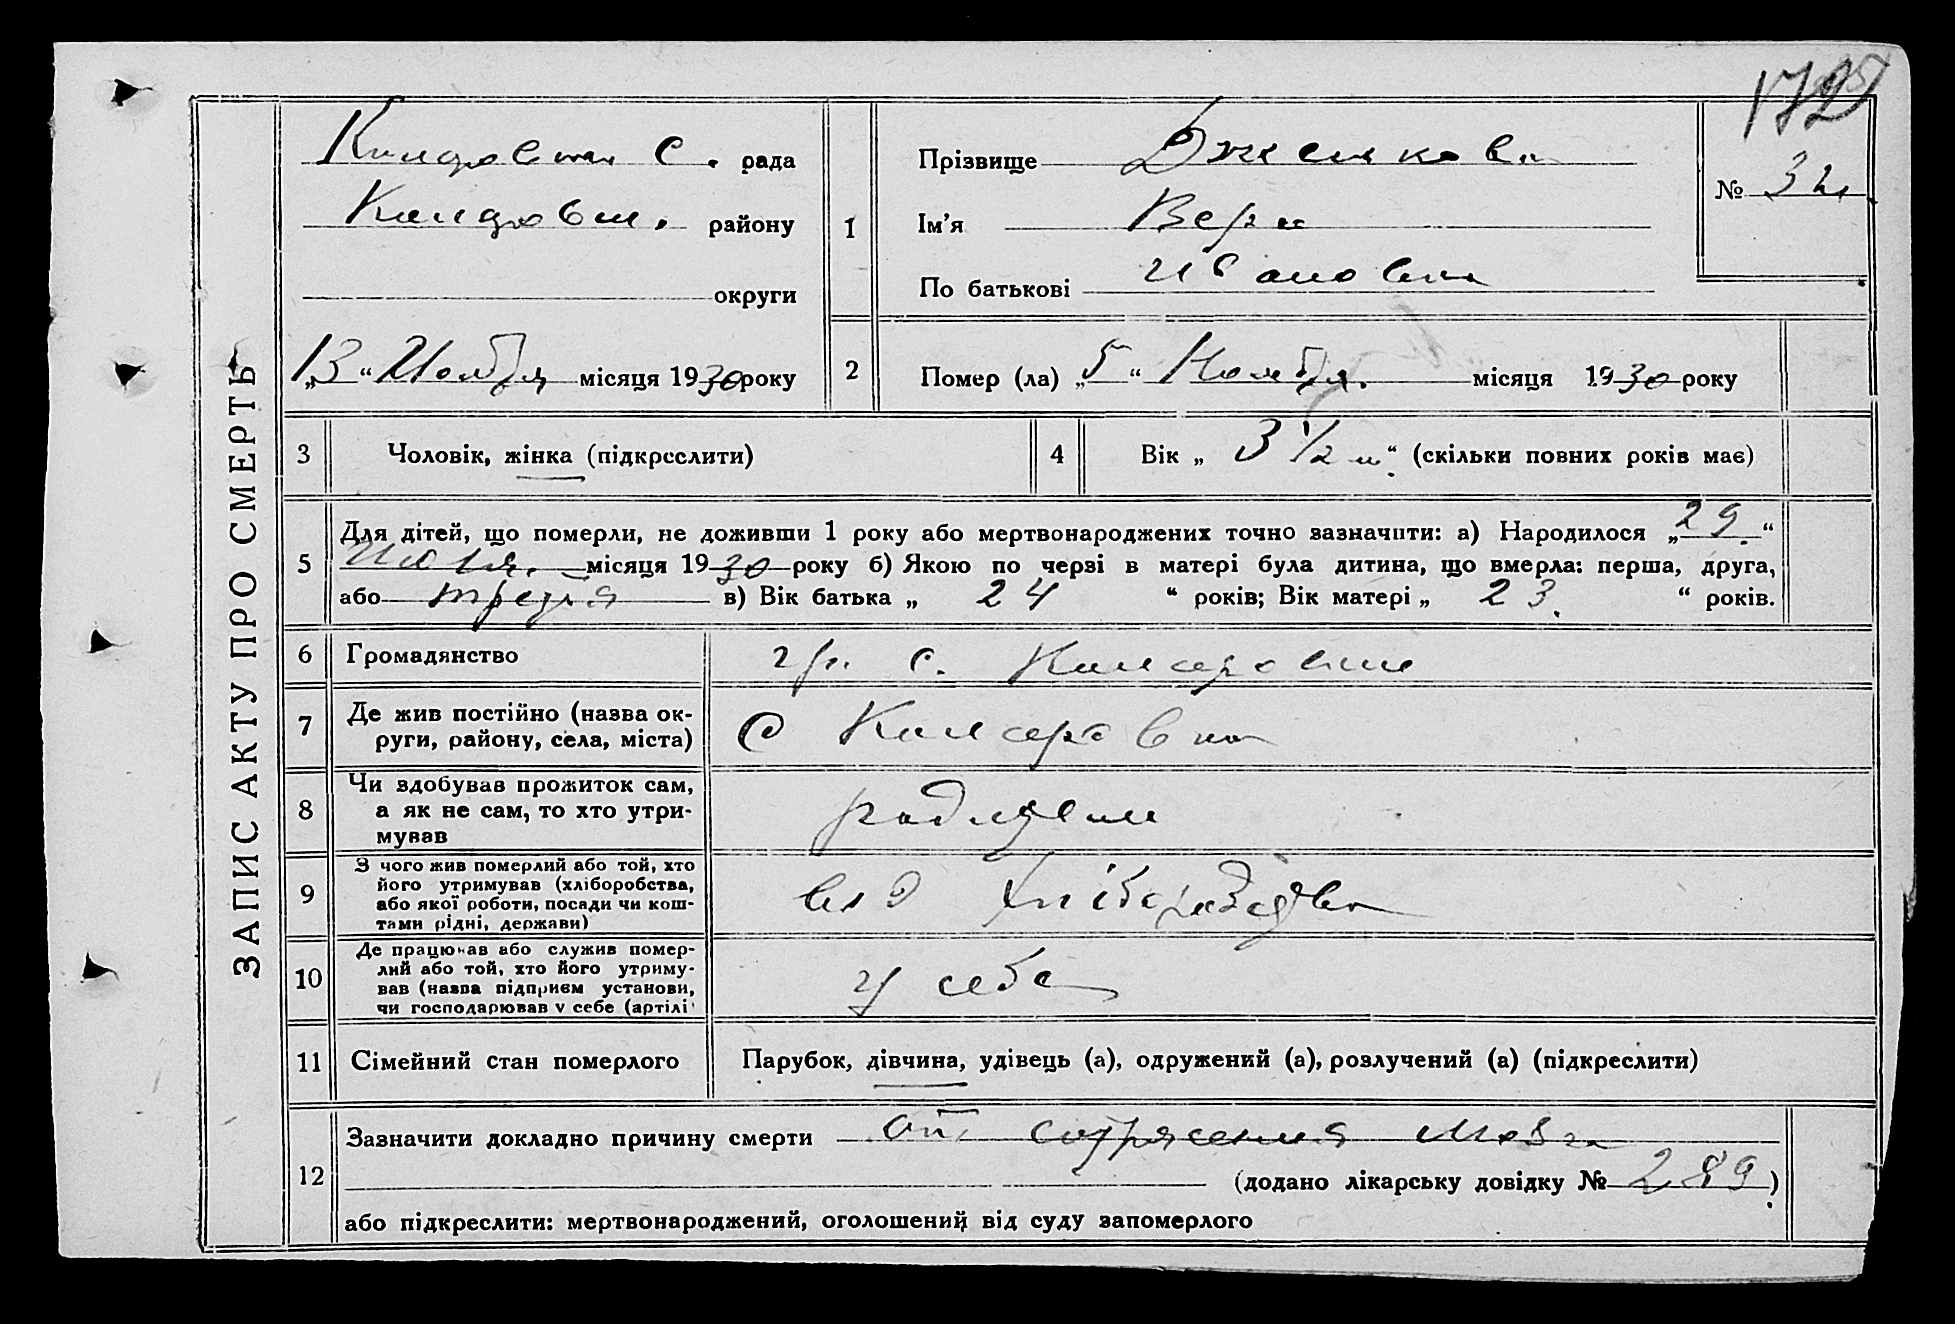 ЗАПИС АКТУ ПРО СМЕРТЬ
с. рада
району
округи
„13“ Ноября місяця 1930 року
1
Прізвище
Ім’я Вера
По батькові Ивановна
№
2
Помер (ла) „5“ Ноября. місяця 1930 року
3 Чоловік, жінка (підкреслити)
4 Вік „3 1/2 м“ (скільки повних років має)
5 Для дітей, що померли, не доживши 1 року або мертвонароджених точно зазначити: а) Народилося „29.“
Июля. місяця 1930 року б) Якою по черзі в матері була дитина, що вмерла: перша, друга,
або третя в) Вік батька „24“ років; Вік матері „23.“ років.
6 Громадянство гр. с.
7 Де жив постійно (назва ок-
руги, району, села, міста) с
8 Чи здобував прожиток сам,
а як не сам, то хто утри-
мував
9 З чого жив померлий або той, хто
його утримував (хліборобства,
або якої роботи, посади чи кош-
тами рідні, держави)
10 Де працював або служив помер-
лий або той, хто його утриму-
вав (назва підприєм установи,
чи господарював у себе (артілі
у себе
11 Сімейний стан померлого Парубок, дівчина, удівець (а), одружений (а), розлучений (а) (підкреслити)
12 Зазначити докладно причину смерти от сотрясения мозга
(додано лікарську довідку № 289)
або підкреслити: мертвонароджений, оголошений від суду запомерлого